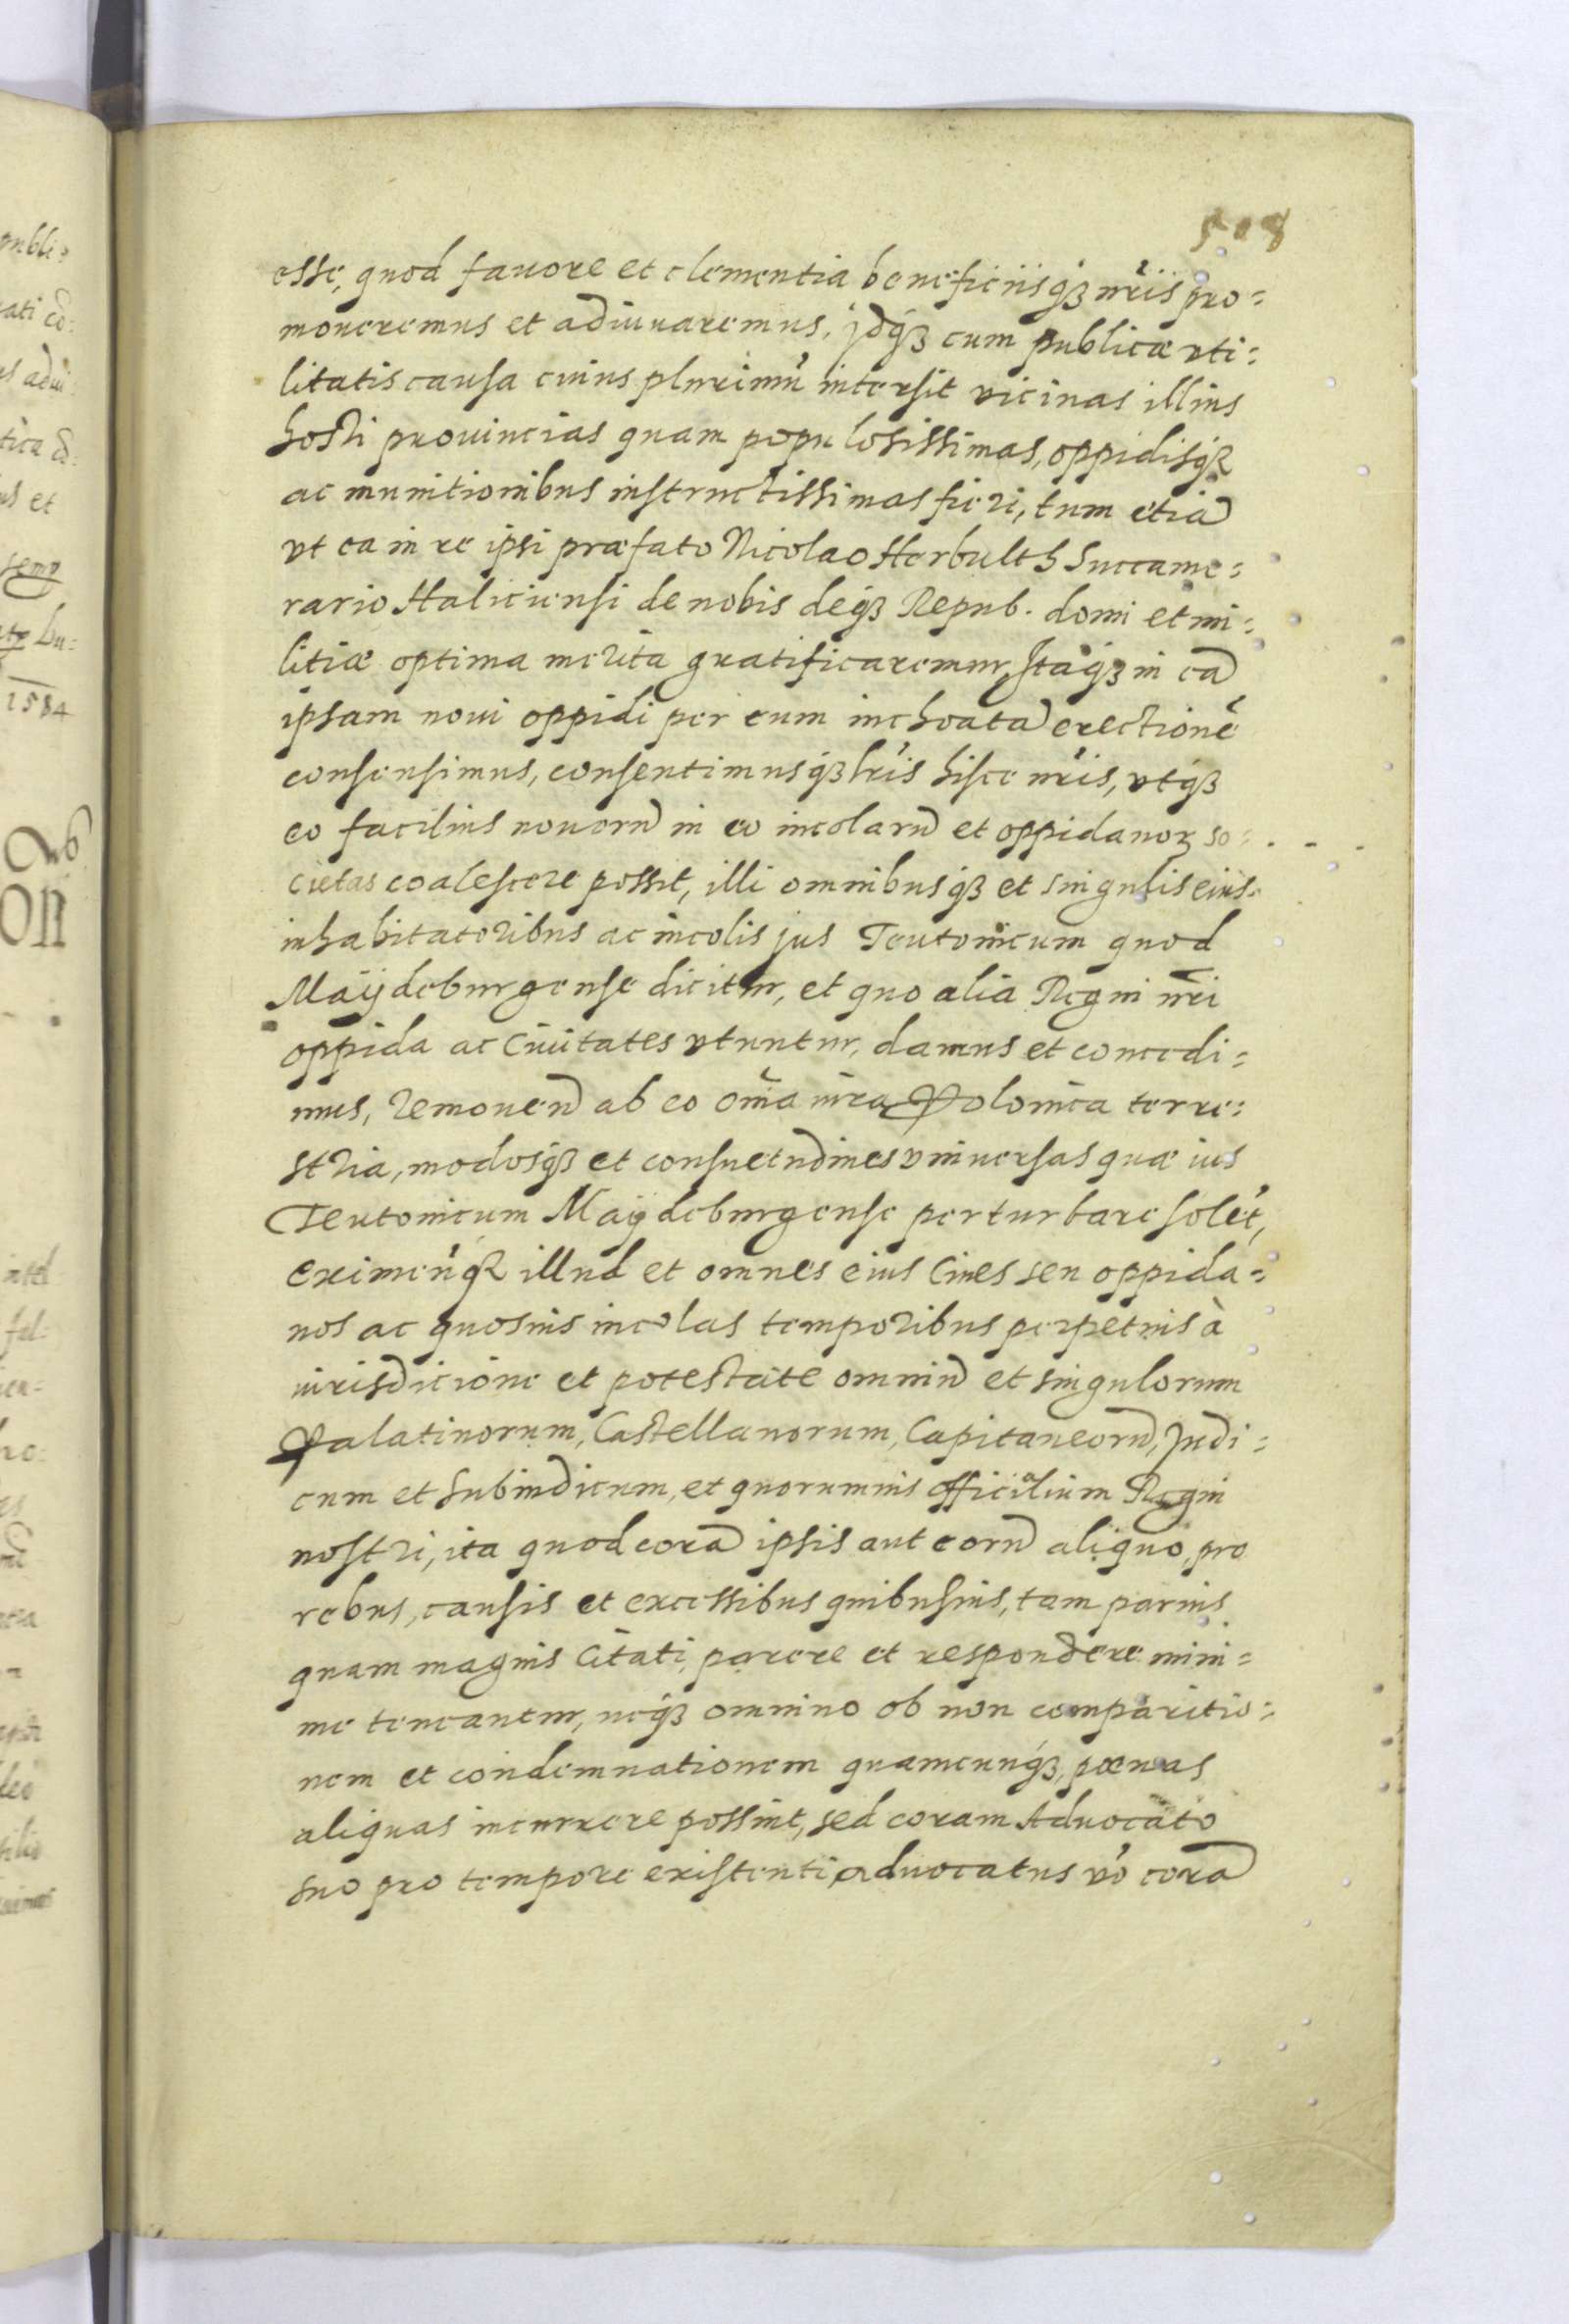 508
esse, quod fauore et clementia beneficiisq3 nr̃is pro=
moueremus et adiuuaremus, jdq3 cum publicæ vti=
litatis causa cuius plurimũ intersit vicinas illius
hosti prouincias quam populosissimas, oppidisq3
ac munitionibus instructissimas fieri, tum etiã
vt ea in re ipsi præfato Nicolao Herbulth Succame=
rario Haliciensi de nobis deq3 Repub. domi et mi=
litiæ optima merita gratificaremur, Itaq3 in eã
ipsam noui oppidi per eum inchoatã erectionẽ
consensimus, consentimusq3 lr̃is hisce nr̃is, vtq3
eo facilius nouorũ in eo incolarũ et oppidanoꝝ so=
cietas coalescere possit, illi omnibusq3 et singulis eius
inhabitatoribus ac incolis jus Teutonicum quod
Maÿdeburgense dicitur, et quo alia Regni nr̃i
oppida ac Ciuitates vtuntur, damus et concedi=
mus, remouen̄ ab eo om̃ia iura Polonica terre=
stria, modosq3 et consuetudines vniuersas quæ ius
Teutonicum Maÿdeburgense perturbare solẽt,
eximen̄q3 illud et omnes eius Ciues seu oppida=
nos ac quosuis incolas temporibus perpetuis à
iurisdicione et potestate omniũ et singulorum
Palatinorum, Castellanorum, Capitaneorũ, Judi=
cum et Subiudicum, et quorumuis officialium Regni
nostri, ita quod corã ipsis aut eorũ aliquo, pro
rebus, causis et excessibus quibusuis, tam paruis
quam magnis Citati, parere et respondere mini=
me teneantur, neq3 omnino ob non comparitio=
nem et condemnationem quamcunq3, pœnas
aliquas incurrere possint, sed coram Aduocato
suo pro tempore existenti aduocatus vo corã
1584